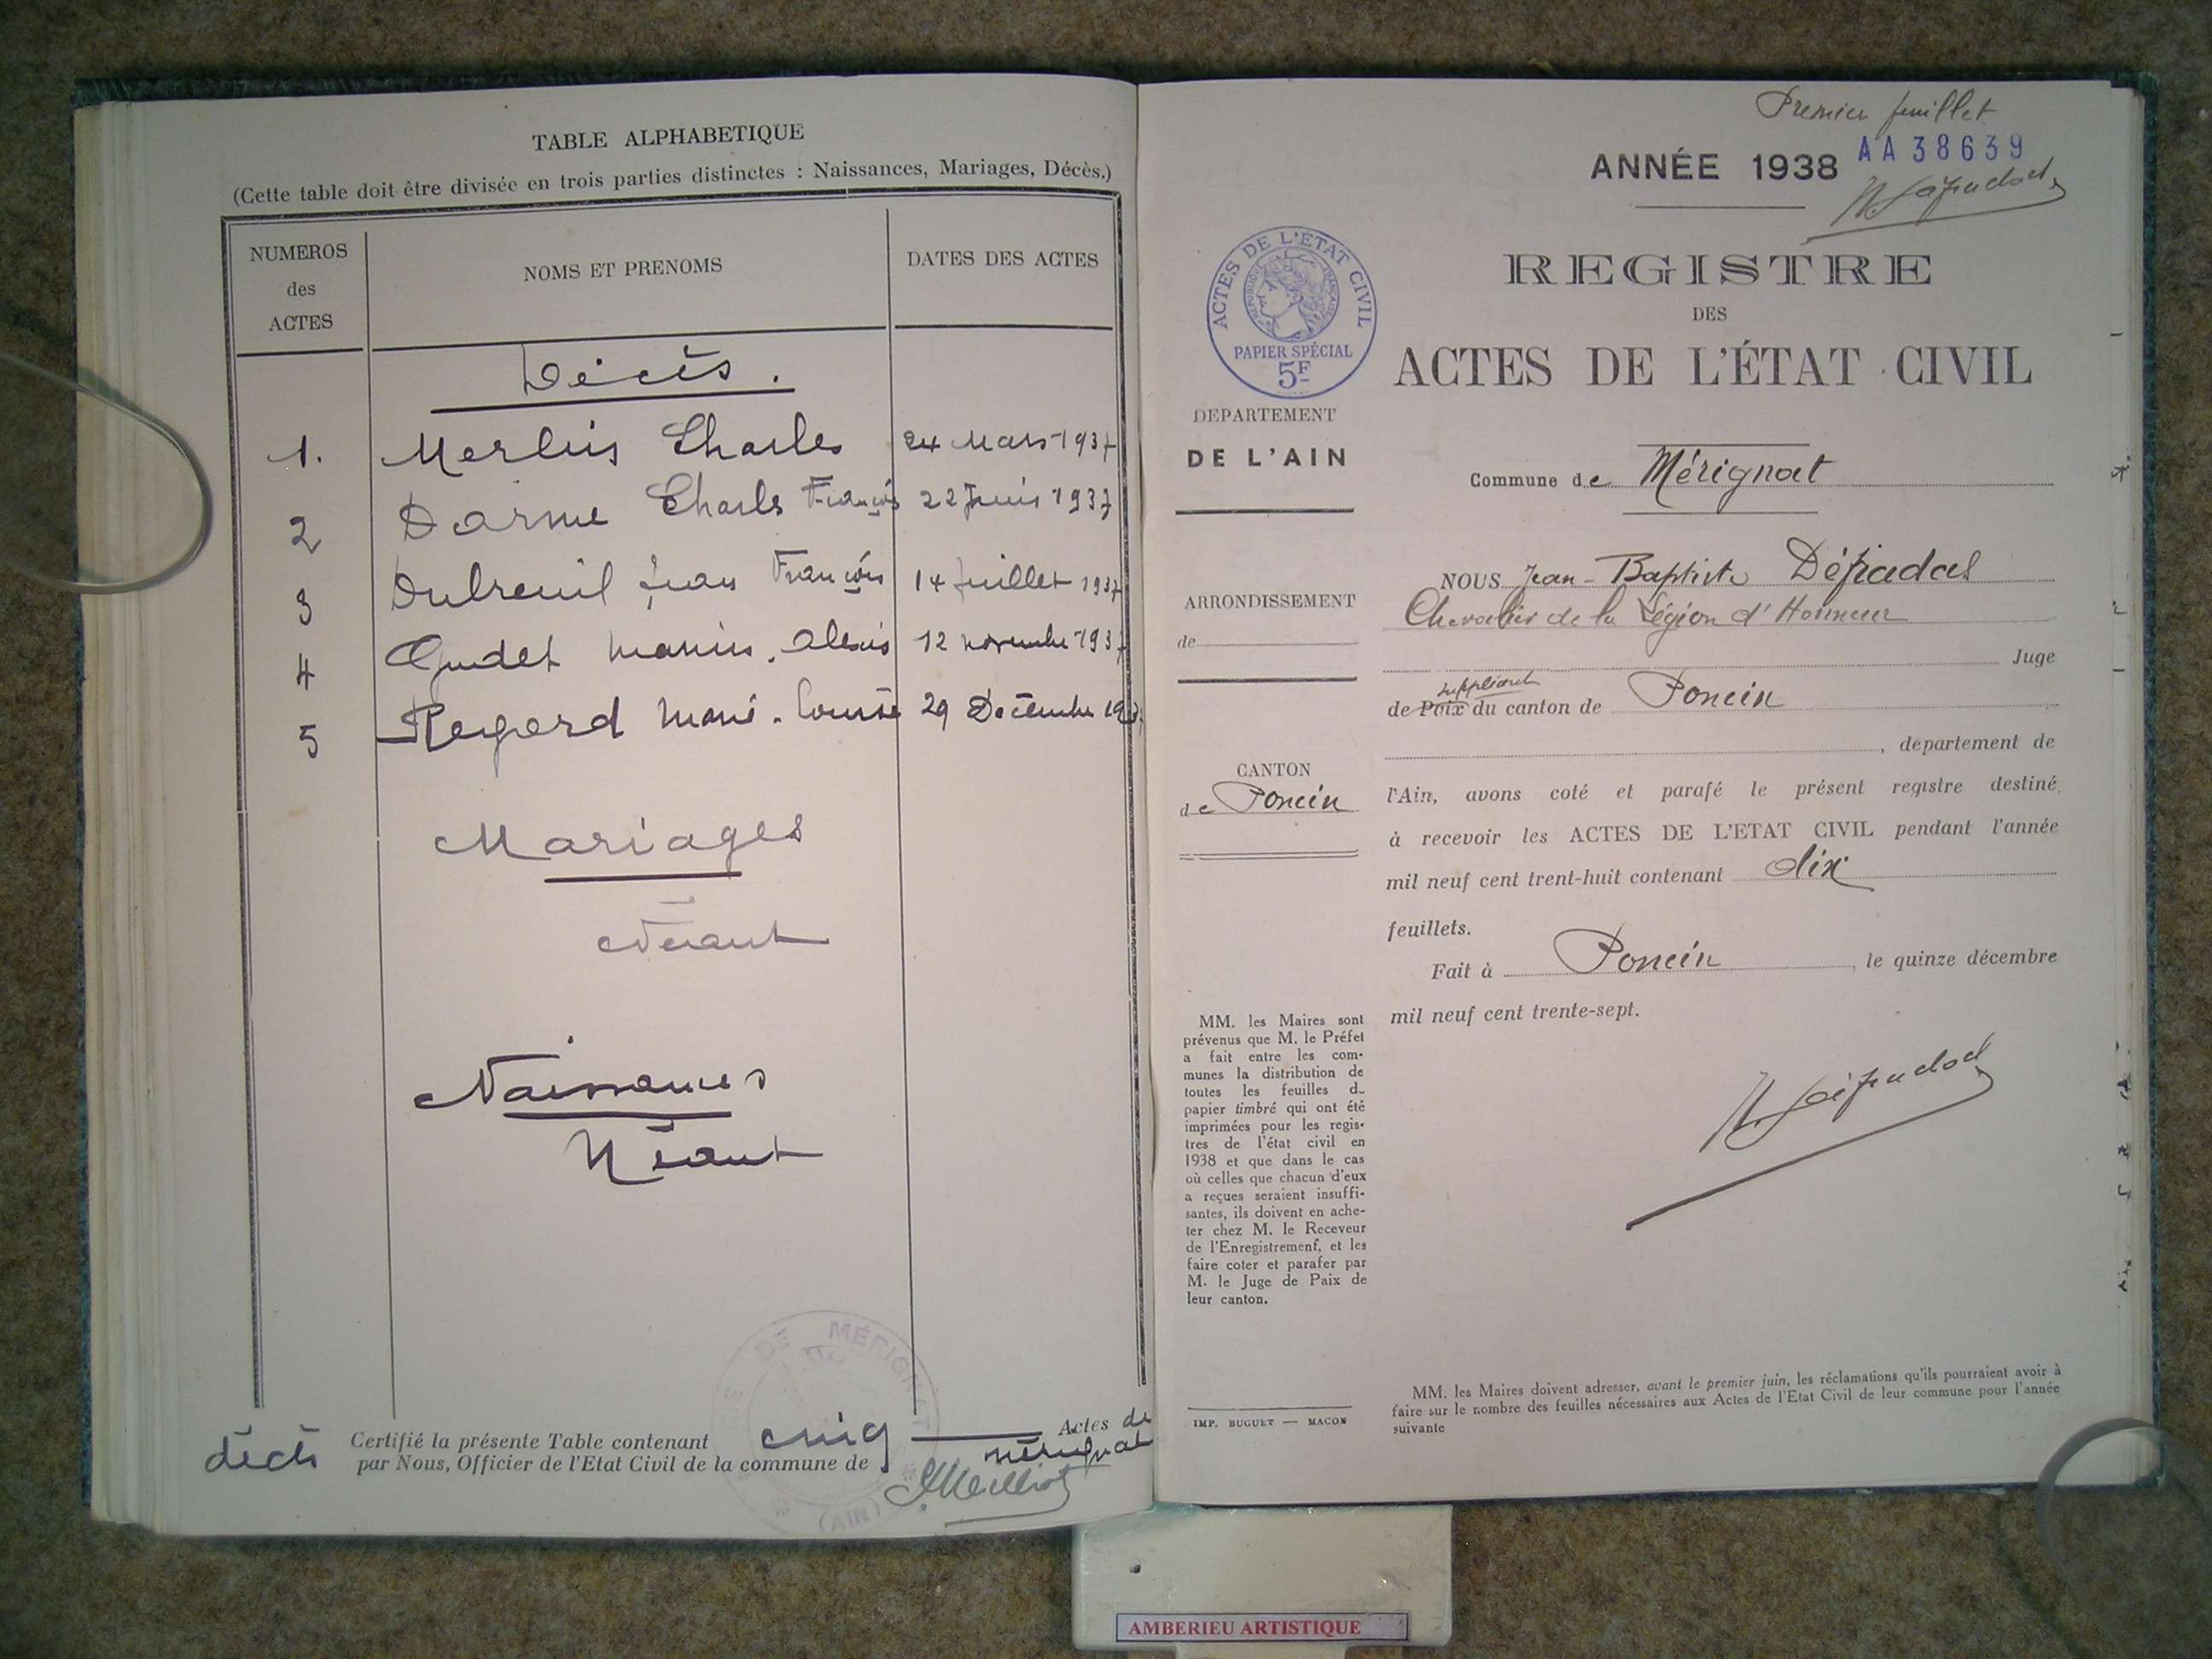 TABLE ALPHABETIQUE
(Cette table doit être divisée en trois parties distinctes : Naissances, Mariages, Décès.)
NUMEROS
des
ACTES
NOMS ET PRENOMS
DATES DES ACTES
Décès.
1. Merlin Charles 24 Mars 1937
2 Darme Charles François 22 Juin 1937
3 Dubreuil Jean François 14 Juillet 1937
4 Oudet Marius. Alexis 12 novembre 1937
5 Regard Marie-Louise 29 Décembre 1937
Mariages
Néant
Naissances
Néant
Certifié la présente Table contenant cinq Actes de
décès par Nous, Officier de l'Etat Civil de la commune de Mérignat
DE MÉRIGNAT
(AIN)
Premier feuillet
ANNÉE 1938 AA38639
REGISTRE
DES
ACTES DE L'ÉTAT CIVIL
ACTES DE L'ETAT CIVIL
REPUBLIQUE FRANÇAISE
PAPIER SPÉCIAL
5F
DEPARTEMENT
DE L'AIN
Commune de Mérignat
ARRONDISSEMENT
de
CANTON
de Poncin
NOUS Jean-Baptiste Dépadal
Chevalier de la Légion d'Honneur
Juge
suppléant
de Paix du canton de Poncin
, département de
l'Ain, avons coté et parafé le présent registre destiné
à recevoir les ACTES DE L'ETAT CIVIL pendant l'année
mil neuf cent trent-huit contenant dix
feuillets.
Fait à Poncin, le quinze décembre
mil neuf cent trente-sept.
MM. les Maires sont
prévenus que M. le Préfet
a fait entre les com-
munes la distribution de
toutes les feuilles d
papier timbré qui ont été
imprimées pour les regis-
tres de l'état civil en
1938 et que dans le cas
où celles que chacun d'eux
a reçues seraient insuffi-
santes, ils doivent en ache-
ter chez M. le Receveur
de l'Enregistrement, et les
faire coter et parafer par
M. le Juge de Paix de
leur canton.
IMP. BUGUET — MACON
MM. les Maires doivent adresser, avant le premier juin, les réclamations qu'ils pourraient avoir à
faire sur le nombre des feuilles nécessaires aux Actes de l'Etat Civil de leur commune pour l'année
suivante
AMBERIEU ARTISTIQUE